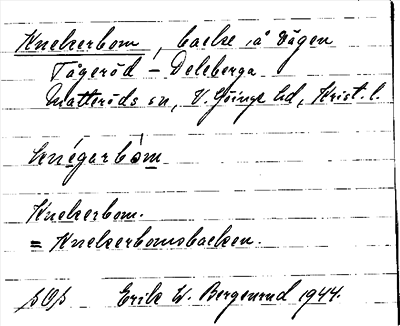 Knekerbom, backe å vägen
Tågeröd - Deleberga
Matteröds sn, V. Göinge hd, Krist. l.
knégarbòm
Knekerbom.
= Knekerbomsbacken.
Erik W. Bergenrud 1944.